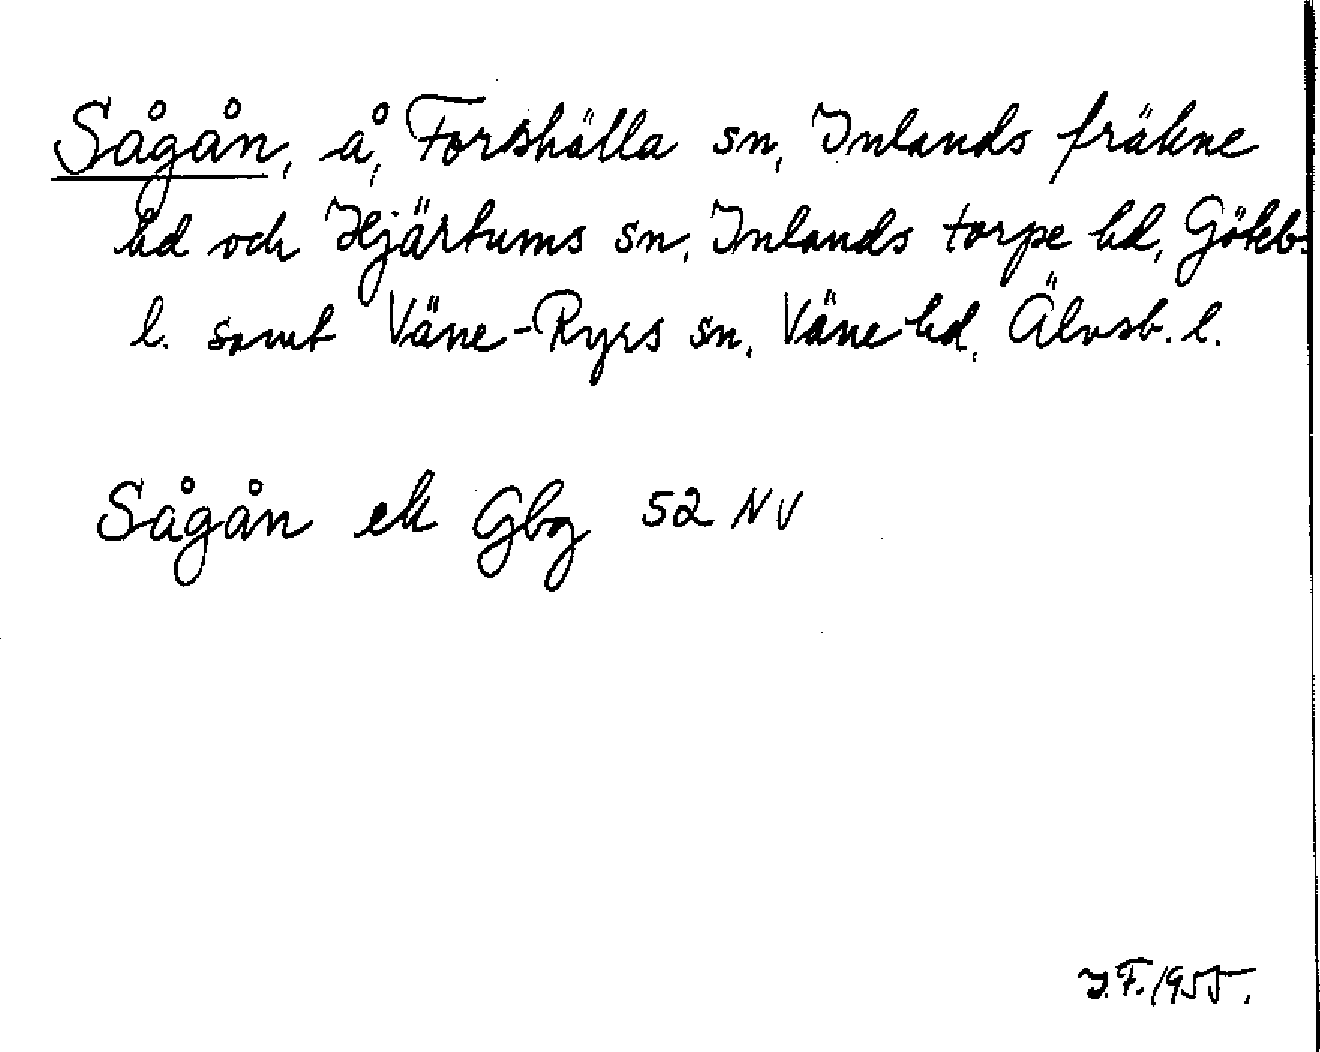 Sågån, å, Forshälla sn, Inlands fräkne
hd och Hjärtums sn, Inlands torpe hd, Götebs
l. samt Väne-Ryrs sn, Väne hd, Älvsb. l.
Sågån ek Gbg 52 NV
J.F. 1955.